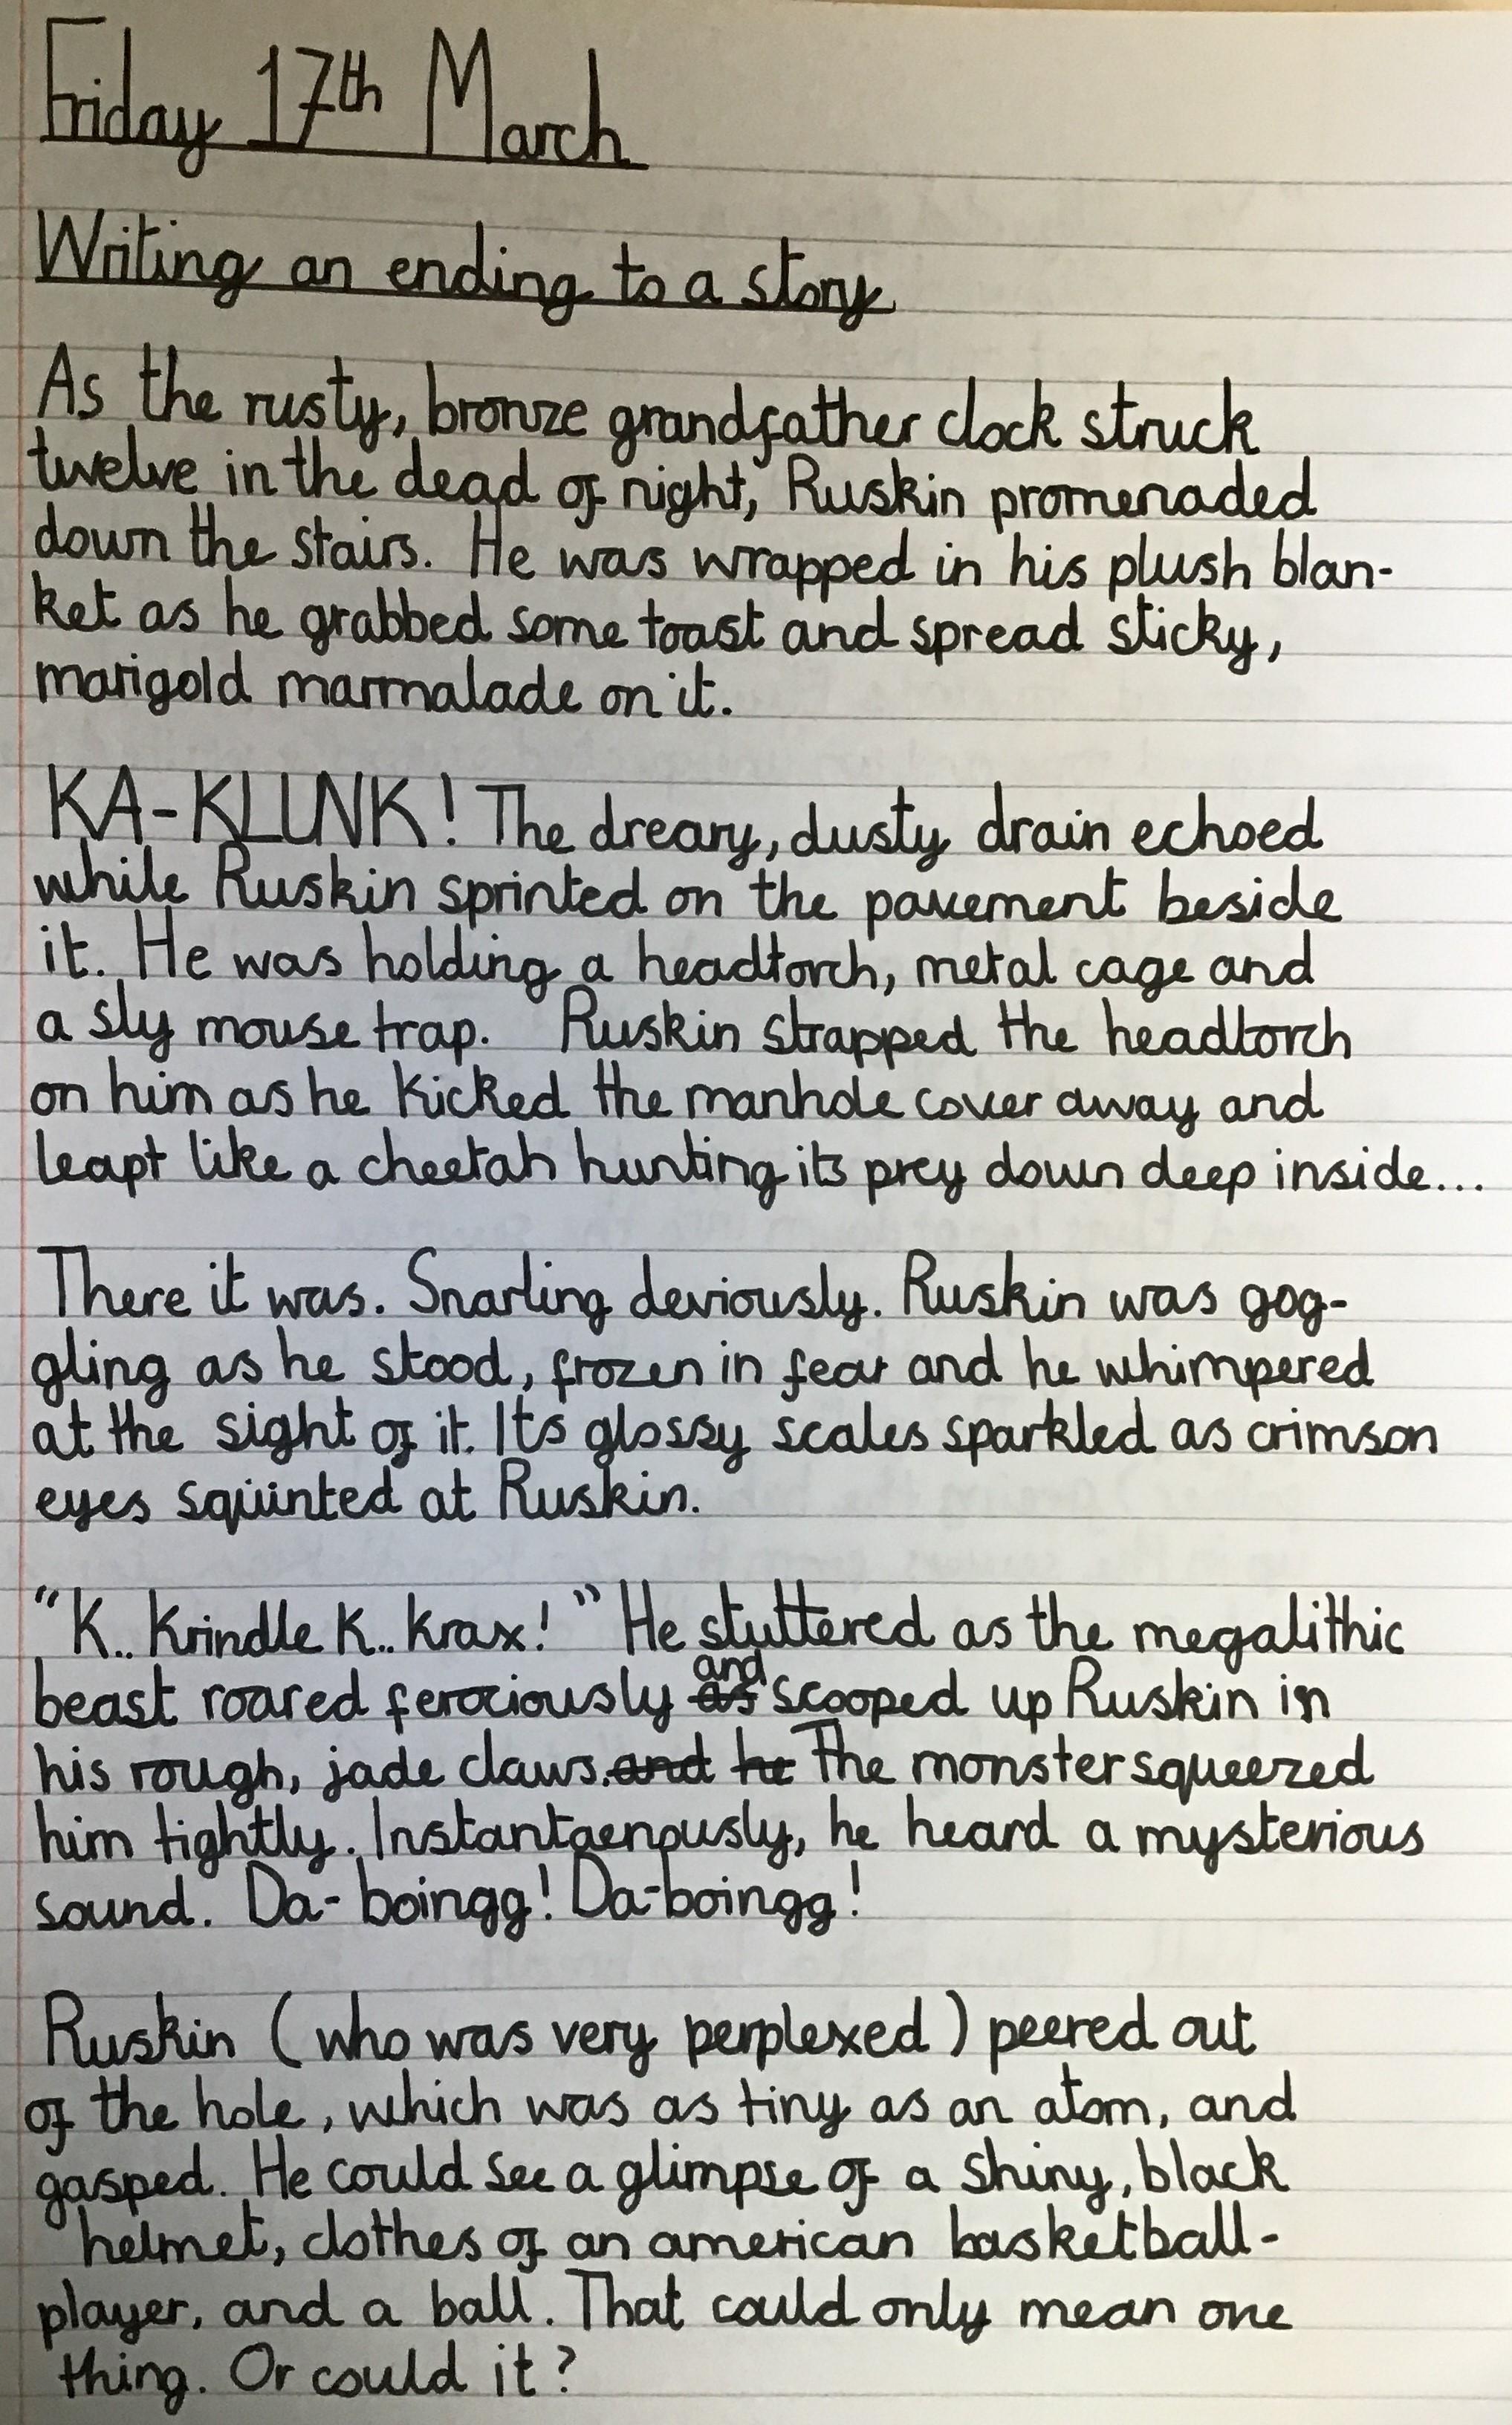 Friday 17th March
Writing an ending to a story
As the rusty, bronze grandfather clock struck
twelve in the dead of night, Ruskin promenaded
down the stairs. He was wrapped in his plush blan-
ket as he grabbed some toast and spread sticky,
marigold marmalade on it.
KA-KLUNK! The dreary, dusty drain echoed
while Ruskin sprinted on the pavement beside
it. He was holding a headtorch, metal cage and
a sly mouse trap. Ruskin strapped the headtorch
on him as he kicked the manhole cover away and
leapt like a cheetah hunting its prey down deep inside...
There it was. Snarling deviously. Ruskin was gog-
gling as he stood, frozen in fear and he whimpered
at the sight of it. Its glossy scales sparkled as crimson
eyes squinted at Ruskin.
"K.. Krindle K.. krax!" He stuttered as the megalithic
beast roared ferociously as and scooped up Ruskin in
his rough, jade claws. and he The monster squeezed
him tightly. Instantaenously, he heard a mysterious
sound. Da-boingg! Da-boingg!
Ruskin (who was very perplexed) peered out
of the hole, which was as tiny as an atom, and
gasped. He could see a glimpse of a shiny, black
helmet, clothes of an american basketball-
player, and a ball. That could only mean one
thing. Or could it?